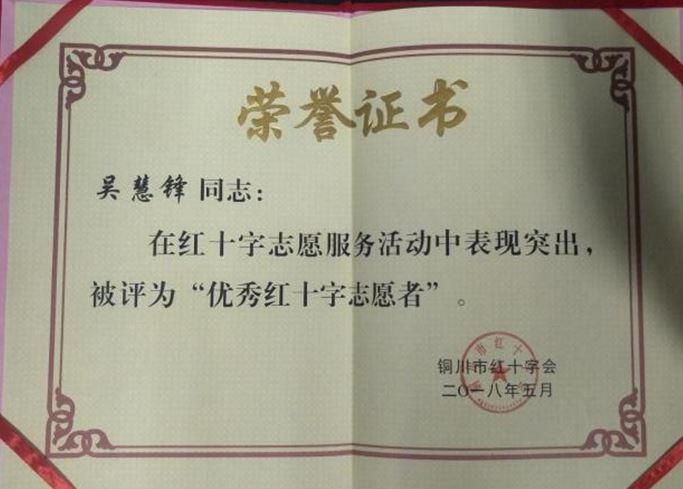 荣誉证书
吴慧锋同志：
在红十字志愿服务活动中表现突出，
被评为“优秀红十字志愿者”。
铜川市红十字会
二〇一八年五月